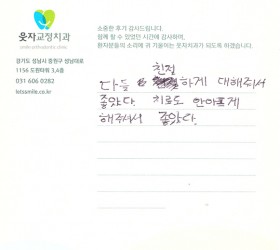 웃자교정치과
smile orthodontic clinic
경기도 성남시 중원구 성남대로
1156 도원타워 3,4층
031 606 0282
letssmile.co.kr
소중한 후기 감사드립니다.
함께 할 수 있었던 시간에 감사하며,
환자분들의 소리에 귀 기울이는 웃자치과가 되도록 하겠습니다.
친절
다들 하게 대해주셔
좋았다. 치료도 안아프게
해주셔서 좋았다.